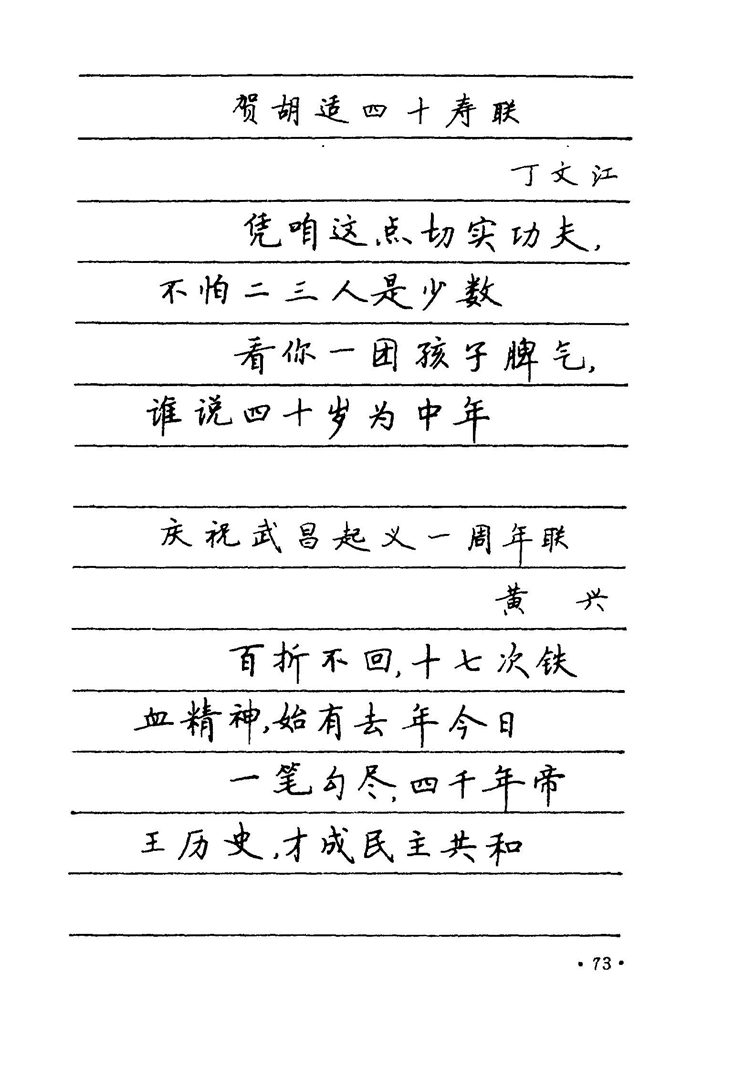 贺胡适四十寿联
丁文江
凭咱这点切实功夫,
不怕二三人是少数
看你一团孩子脾气,
谁说四十岁为中年
庆祝武昌起义一周年联
黄 兴
百折不回,十七次铁
血精神,始有去年今日
一笔勾尽,四千年帝
王历史,才成民主共和
·73·